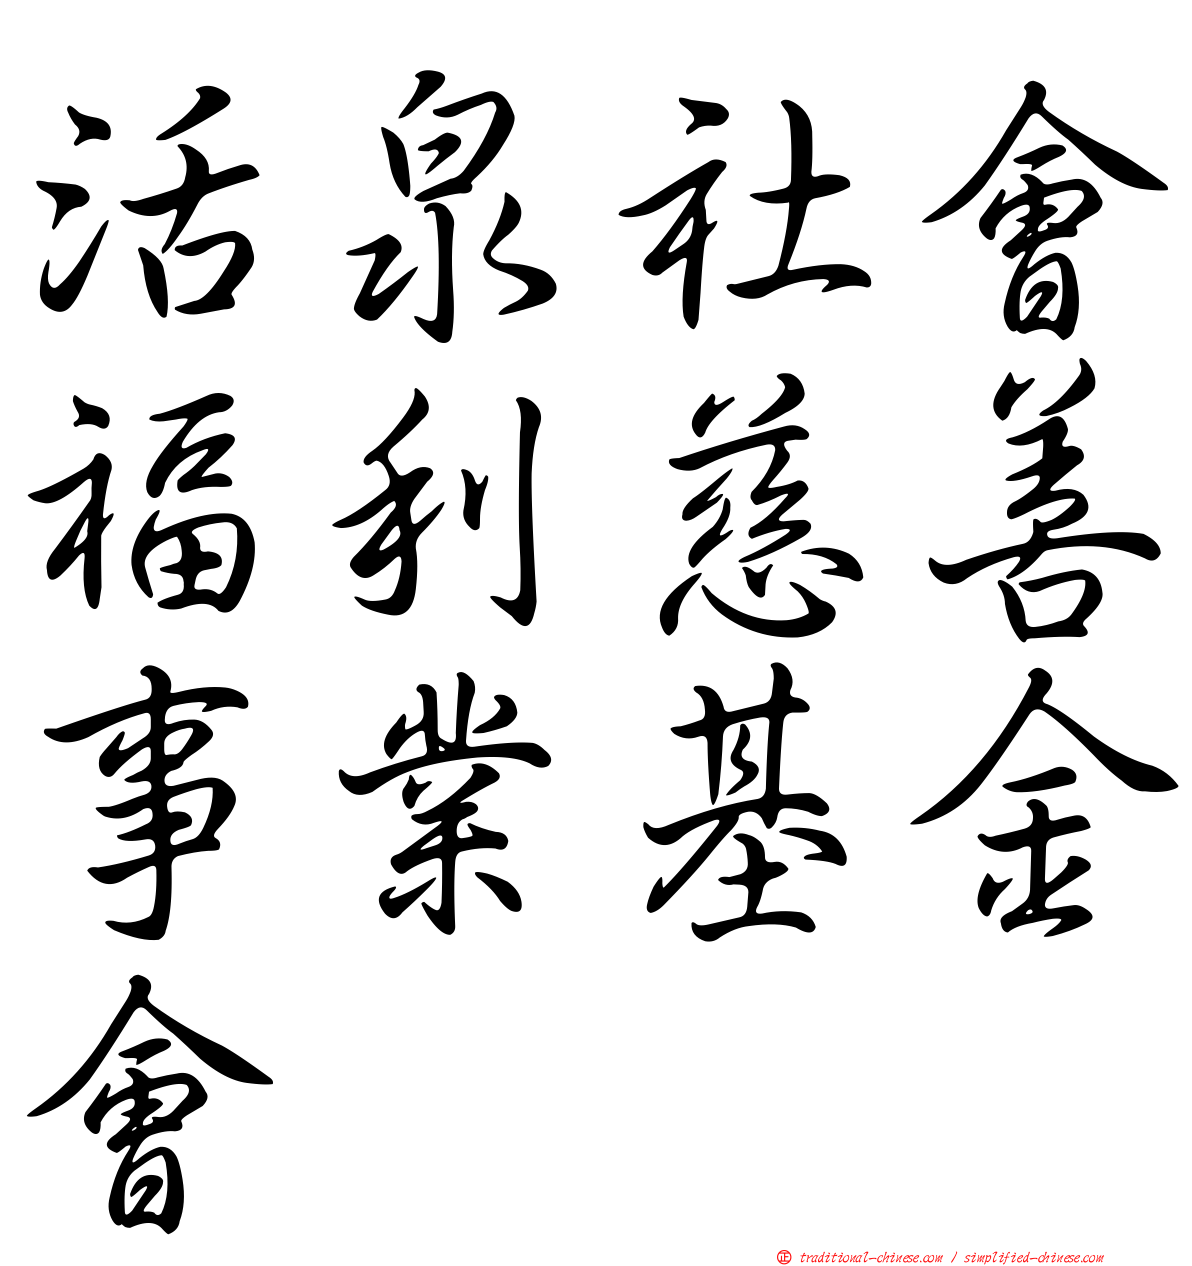 活泉社會
福利慈善
事業基金
會
㊣ traditional-chinese.com / simplified-chinese.com